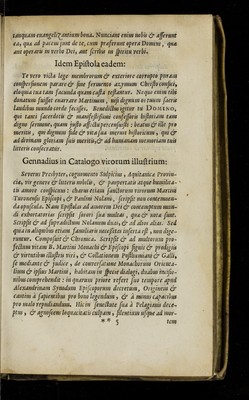 tanquam euangelizantium bona. Nunciant enim nobis & afferunt
ea, qua ad pacem sunt de te, cum præferunt opera Domini, qua
aut operaris in verbo Dei, aut scribis in spiritu verbi.
Idem Epistola eadem:
Te vero vitâ lege membrorum & exteriore
conspersionem parare & sine fermento azymum Christo
eloquia tua tam facunda quam casta testantur. Neque enim tibi
donatum fuisset enarrare Martinum, nisi dignum os tuum sacris
laudibus mundo corde fecisses. Benedictus igitur tu Domino,
qui tanti sacerdotis & manifestissimi confessoris historiam tam
digno sermone, quam justo affectu percensuisti: beatus & ille pro
meritis, qui dignum fide & vita sua meruit historicum, qui &
ad divinam gloriam suis meritis, & ad humanam memoriam tuis
litteris consecratur.
Gennadius in Catalogo virorum illustrium:
Severus Presbyter, cognomento Sulpicius, Aquitanica Provin-
cia, vir genere & litteris nobilis, & paupertatis atque humilita-
tis amore conspicuus: charus etiam sanctorum virorum Martini
Turonensis Episcopi, & Paulini Nolani, scripsit non contemnen-
da opuscula. Nam Epistolas ad amorem Dei & contemptum mun-
di exhortatorias scripsit sorori suæ multas, quæ & notæ sunt.
Scripsit & ad supradictum Nolanum duas, & ad alios alias. Sed
quia in aliquibus etiam familiaris necessitas inserta est, non dige-
runtur. Composuit & Chronica. Scripsit & ad multorum pro-
fectum vitam B. Martini Monachi & Episcopi signis & prodigiis
& virtutibus illustris viri, & Collationem Posthumiani & Galli,
se mediante & judice, de conversatione Monachorum Orienta-
lium & ipsius Martini, habitam in specie dialogi, duabus incisio-
nibus comprehendit: in quarum priore refert suo tempore apud
Alexandriam Synodum Episcoporum decretum, Origenem &
cautius à sapientibus pro bonis legendum, & à minus capacibus
pro malis repudiandum. Hic in senectute sua à Pelagianis dece-
ptus, & agnoscens loquacitatis culpam, silentium usque ad mor-
** 5 tem